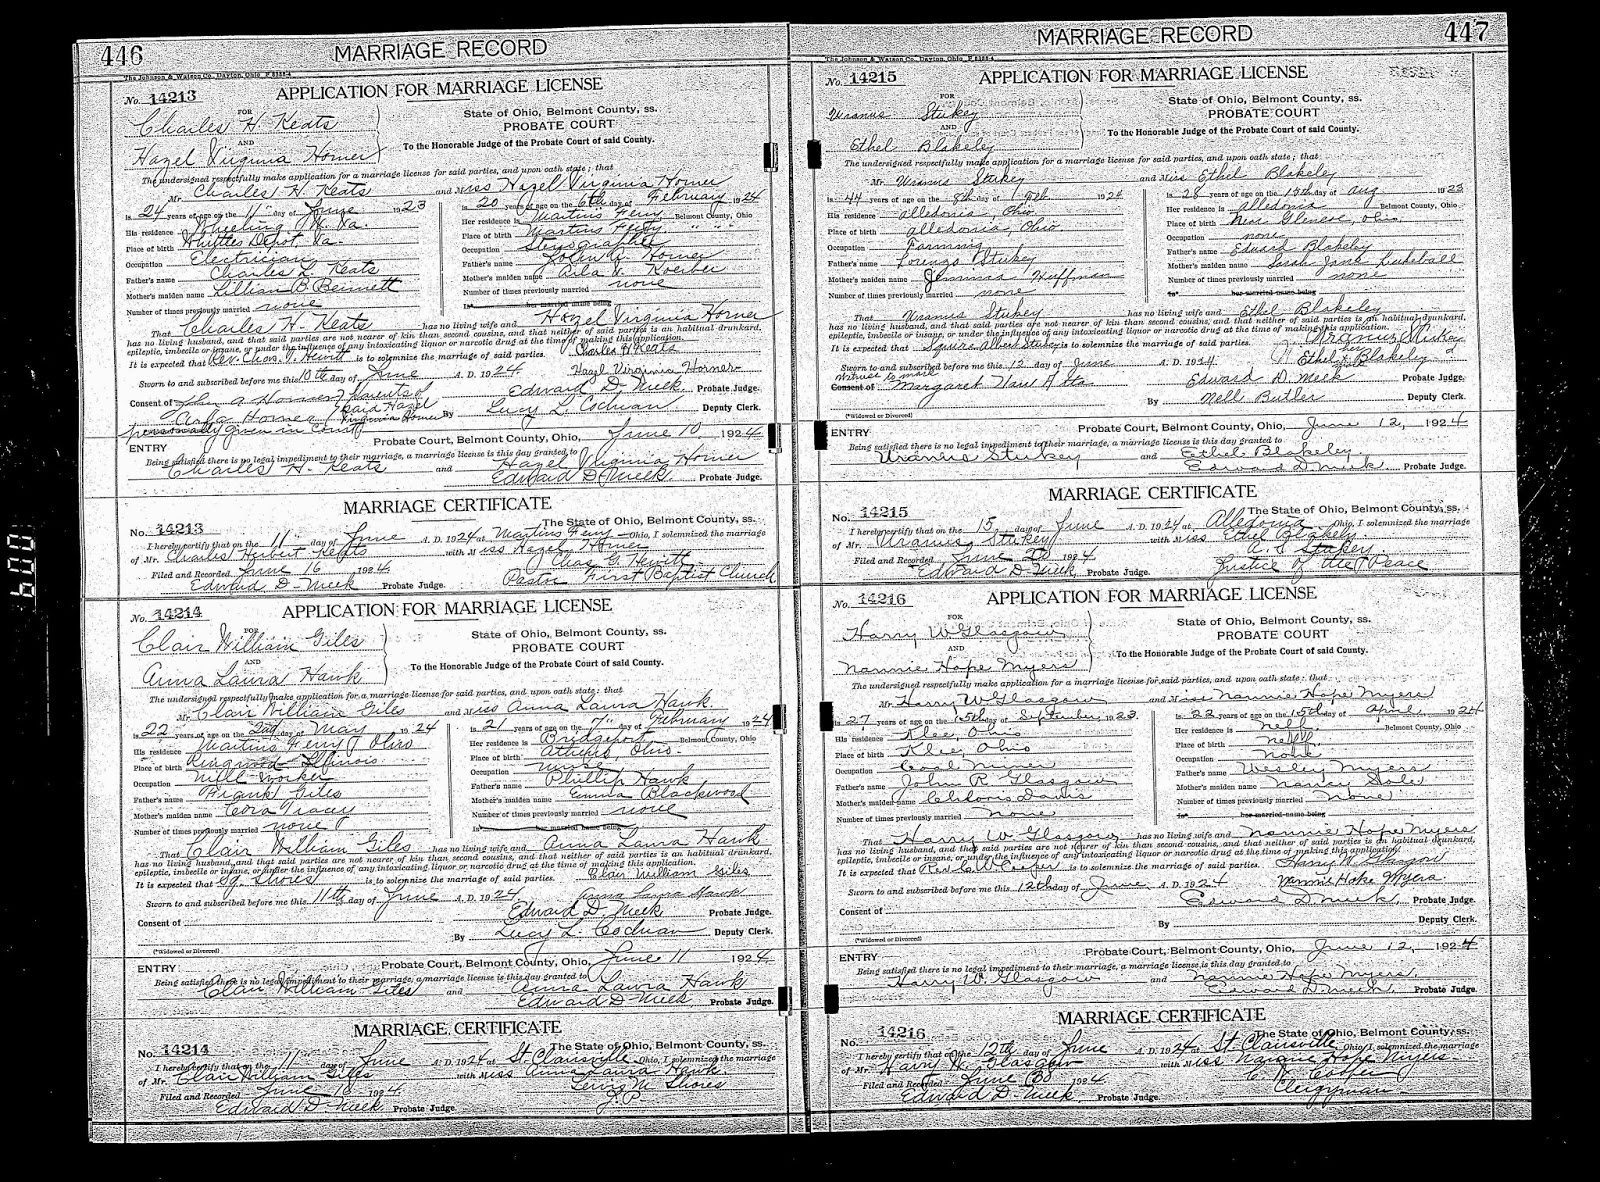 446
MARRIAGE RECORD
The Johnson & Watson Co., Dayton, Ohio
No. 14213
APPLICATION FOR MARRIAGE LICENSE
FOR
Charles H Keats
AND
Hazel Virginia Horner
State of Ohio, Belmont County, ss.
PROBATE COURT
To the Honorable Judge of the Probate Court of said County.
The undersigned respectfully make application for a marriage license for said parties, and upon oath state; that
Mr. Charles H. Keats and Miss Hazel Virginia Horner
is 24 years of age on the 11" day of June 1923
His residence Wheeling W. Va.
Place of birth Whittles Depot, Va.
Occupation Electrician
Father's name Charles L. Keats
Mother's maiden name Lillian B Bennett
Number of times previously married none
is 20 years of age on the 6th day of February 1924
Her residence Martins Ferry Belmont County, Ohio
Place of birth Martins Ferry " " "
Occupation Stenographer
Father's name John A. Horner
Mother's maiden name Koerber
Number of times previously married none
her married name being
That Charles H. Keats has no living wife and Hazel Virginia Horner
has no living husband, and that said parties are not nearer of kin than second cousins, and that neither of said parties is an habitual drunkard,
epileptic, imbecile or insane, or under the influence of any intoxicating liquor or narcotic drug at the time of making this application.
It is expected that Rev. Chas. G. Hewitt is to solemnize the marriage of said parties. Charles H Keats
Hazel Virginia Horner
Sworn to and subscribed before me this 10th day of June A. D. 1924
Edward D. Meek Probate Judge.
Consent of John A Horner parents of
Horner said Hazel Virginia Horner
personally given in Court
By Lucy L. Cochran Deputy Clerk.
Probate Court, Belmont County, Ohio, June 10 1924
ENTRY
Being satisfied there is no legal impediment to their marriage, a marriage license is this day granted to
Charles H. Keats and Hazel Virginia Horner
Edward D. Meek Probate Judge.
MARRIAGE CERTIFICATE
No. 14213
The State of Ohio, Belmont County, ss:
I hereby certify that on the 11 day of June A. D. 1924 at Martins Ferry Ohio, I solemnized the marriage
of Mr. Charles Herbert Keats with Miss Hazel Horner
Chas. G. Hewitt
Filed and Recorded June 16 1924
Pastor First Baptist Church
Edward D. Meek Probate Judge.
No. 14214
APPLICATION FOR MARRIAGE LICENSE
FOR
Clair William Giles
AND
Anna Laura Hawk
State of Ohio, Belmont County, ss.
PROBATE COURT
To the Honorable Judge of the Probate Court of said County.
The undersigned respectfully make application for a marriage license for said parties, and upon oath state: that
Mr. Clair William Giles and Miss Anna Laura Hawk.
is 22 years of age on the 2nd day of May 1924
His residence Martins Ferry, Ohio
Place of birth Ringwood Illinois
Occupation Mill Worker
Father's name Frank Giles
Mother's maiden name Cora Tracy
Number of times previously married none
is 21 years of age on the 7" day of February 1924
Her residence Bridgeport Belmont County, Ohio
Place of birth Athens Ohio.
Occupation nurse
Father's name Phillip Hawk
Mother's maiden name Emma Blackwood
Number of times previously married none
her married name being
That Clair William Giles has no living wife and Anna Laura Hawk
has no living husband, and that said parties are not nearer of kin than second cousins, and that neither of said parties is an habitual drunkard,
epileptic, imbecile or insane, or under the influence of any intoxicating liquor, or narcotic drug at the time of making this application.
It is expected that Sq. Shores is to solemnize the marriage of said parties. Clair William Giles
Anna Laura Hawk
Sworn to and subscribed before me this 11th day of June A. D. 1924
Edward D. Meek Probate Judge.
Consent of
By Lucy L. Cochran Deputy Clerk.
(*Widowed or Divorced)
Probate Court, Belmont County, Ohio, June 11 1924
ENTRY
Being satisfied there is no legal impediment to their marriage, a marriage license is this day granted to
Clair William Giles and Anna Laura Hawk
Edward D. Meek Probate Judge.
MARRIAGE CERTIFICATE
No. 14214
The State of Ohio, Belmont County, ss:
I hereby certify that on the 11 day of June A. D. 1924 at St. Clairsville, Ohio, I solemnized the marriage
of Mr. Clair William Giles with Miss Anna Laura Hawk.
Lewis N. Shores
Filed and Recorded June 18 1924
J. P.
Edward D. Meek. Probate Judge.
MARRIAGE RECORD
447
The Johnson & Watson Co., Dayton, Ohio
No. 14215
APPLICATION FOR MARRIAGE LICENSE
FOR
Uranus Stukey
AND
Ethel Blakeley
State of Ohio, Belmont County, ss.
PROBATE COURT
To the Honorable Judge of the Probate Court of said County.
The undersigned respectfully make application for a marriage license for said parties, and upon oath state; that
Mr. Uranus Stukey and Miss Ethel Blakeley
is 44 years of age on the 8th day of Feb. 1924
His residence Alledonia, Ohio
Place of birth Alledonia, Ohio
Occupation Farming
Father's name Lorenzo Stukey
Mother's maiden name Jemima Huffman
Number of times previously married none
is 28 years of age on the 19th day of Aug 1923
Her residence Alledonia Belmont County, Ohio
Place of birth Near Glencoe, Ohio.
Occupation none
Father's name Edward Blakeley
Mother's maiden name Sarah Jane
Number of times previously married none
her married name being
That Uranus Stukey has no living wife and Ethel Blakeley
has no living husband, and that said parties are not nearer of kin than second cousins, and that neither of said parties is an habitual drunkard,
epileptic, imbecile or insane, or under the influence of any intoxicating liquor or narcotic drug at the time of making this application.
It is expected that Squire Albert Stukey is to solemnize the marriage of said parties. Uranus Stukey
Ethel x Blakeley
Sworn to and subscribed before me this 12 day of June A. D. 1924
witness to mark
Consent of Margaret
Edward D. Meek Probate Judge.
By Nell Butler Deputy Clerk.
(*Widowed or Divorced)
Probate Court, Belmont County, Ohio, June 12, 1924
ENTRY
Being satisfied there is no legal impediment to their marriage, a marriage license is this day granted to
Uranus Stukey and Ethel Blakeley
Edward D. Meek Probate Judge.
MARRIAGE CERTIFICATE
No. 14215
The State of Ohio, Belmont County, ss:
I hereby certify that on the 15 day of June A. D. 1924 at Alledonia Ohio, I solemnized the marriage
of Mr. Uranus Stukey with Miss Ethel Blakely.
A. S. Stukey
Filed and Recorded June 20 1924
Justice of the Peace
Edward D. Meek, Probate Judge.
No. 14216
APPLICATION FOR MARRIAGE LICENSE
FOR
Harry W Glasgow
AND
Nannie Hope Myers
State of Ohio, Belmont County, ss.
PROBATE COURT
To the Honorable Judge of the Probate Court of said County.
The undersigned respectfully make application for a marriage license for said parties, and upon oath state: that
Mr. Harry W Glasgow and Miss Nannie Hope Myers
is 27 years of age on the 15th day of September, 1923
His residence Klee, Ohio
Place of birth Klee, Ohio
Occupation Coal Miner
Father's name John R Glasgow
Mother's maiden name Davis
Number of times previously married none
is 22 years of age on the 15th day of April, 1924
Her residence Neff. Belmont County, Ohio
Place of birth Neff "
Occupation None
Father's name Wesley Myers
Mother's maiden name Nancy
Number of times previously married None
her married name being
That Harry W Glasgow has no living wife and Nannie Hope Myers
has no living husband, and that said parties are not nearer of kin than second cousins, and that neither of said parties is an habitual drunkard,
epileptic, imbecile or insane, or under the influence of any intoxicating liquor or narcotic drug at the time of making this application.
It is expected that Rev. C. W. Cooper is to solemnize the marriage of said parties. Harry W. Glasgow
Nannie Hope Myers.
Sworn to and subscribed before me this 12th day of June A. D. 1924
Edward D. Meek, Probate Judge.
Consent of
By Deputy Clerk.
(*Widowed or Divorced)
Probate Court, Belmont County, Ohio, June 12, 1924
ENTRY
Being satisfied there is no legal impediment to their marriage, a marriage license is this day granted to
Harry W. Glasgow and Nannie Hope Myers.
Edward D. Meek, Probate Judge.
MARRIAGE CERTIFICATE
No. 14216
The State of Ohio, Belmont County, ss:
I hereby certify that on the 12th day of June A. D. 1924 at St Clairsville, Ohio, I solemnized the marriage
of Mr. Harry W. Glasgow with Miss Nannie Hope Myers
C. W. Cooper
Filed and Recorded June 1924
Clergyman
Edward D. Meek. Probate Judge.
600